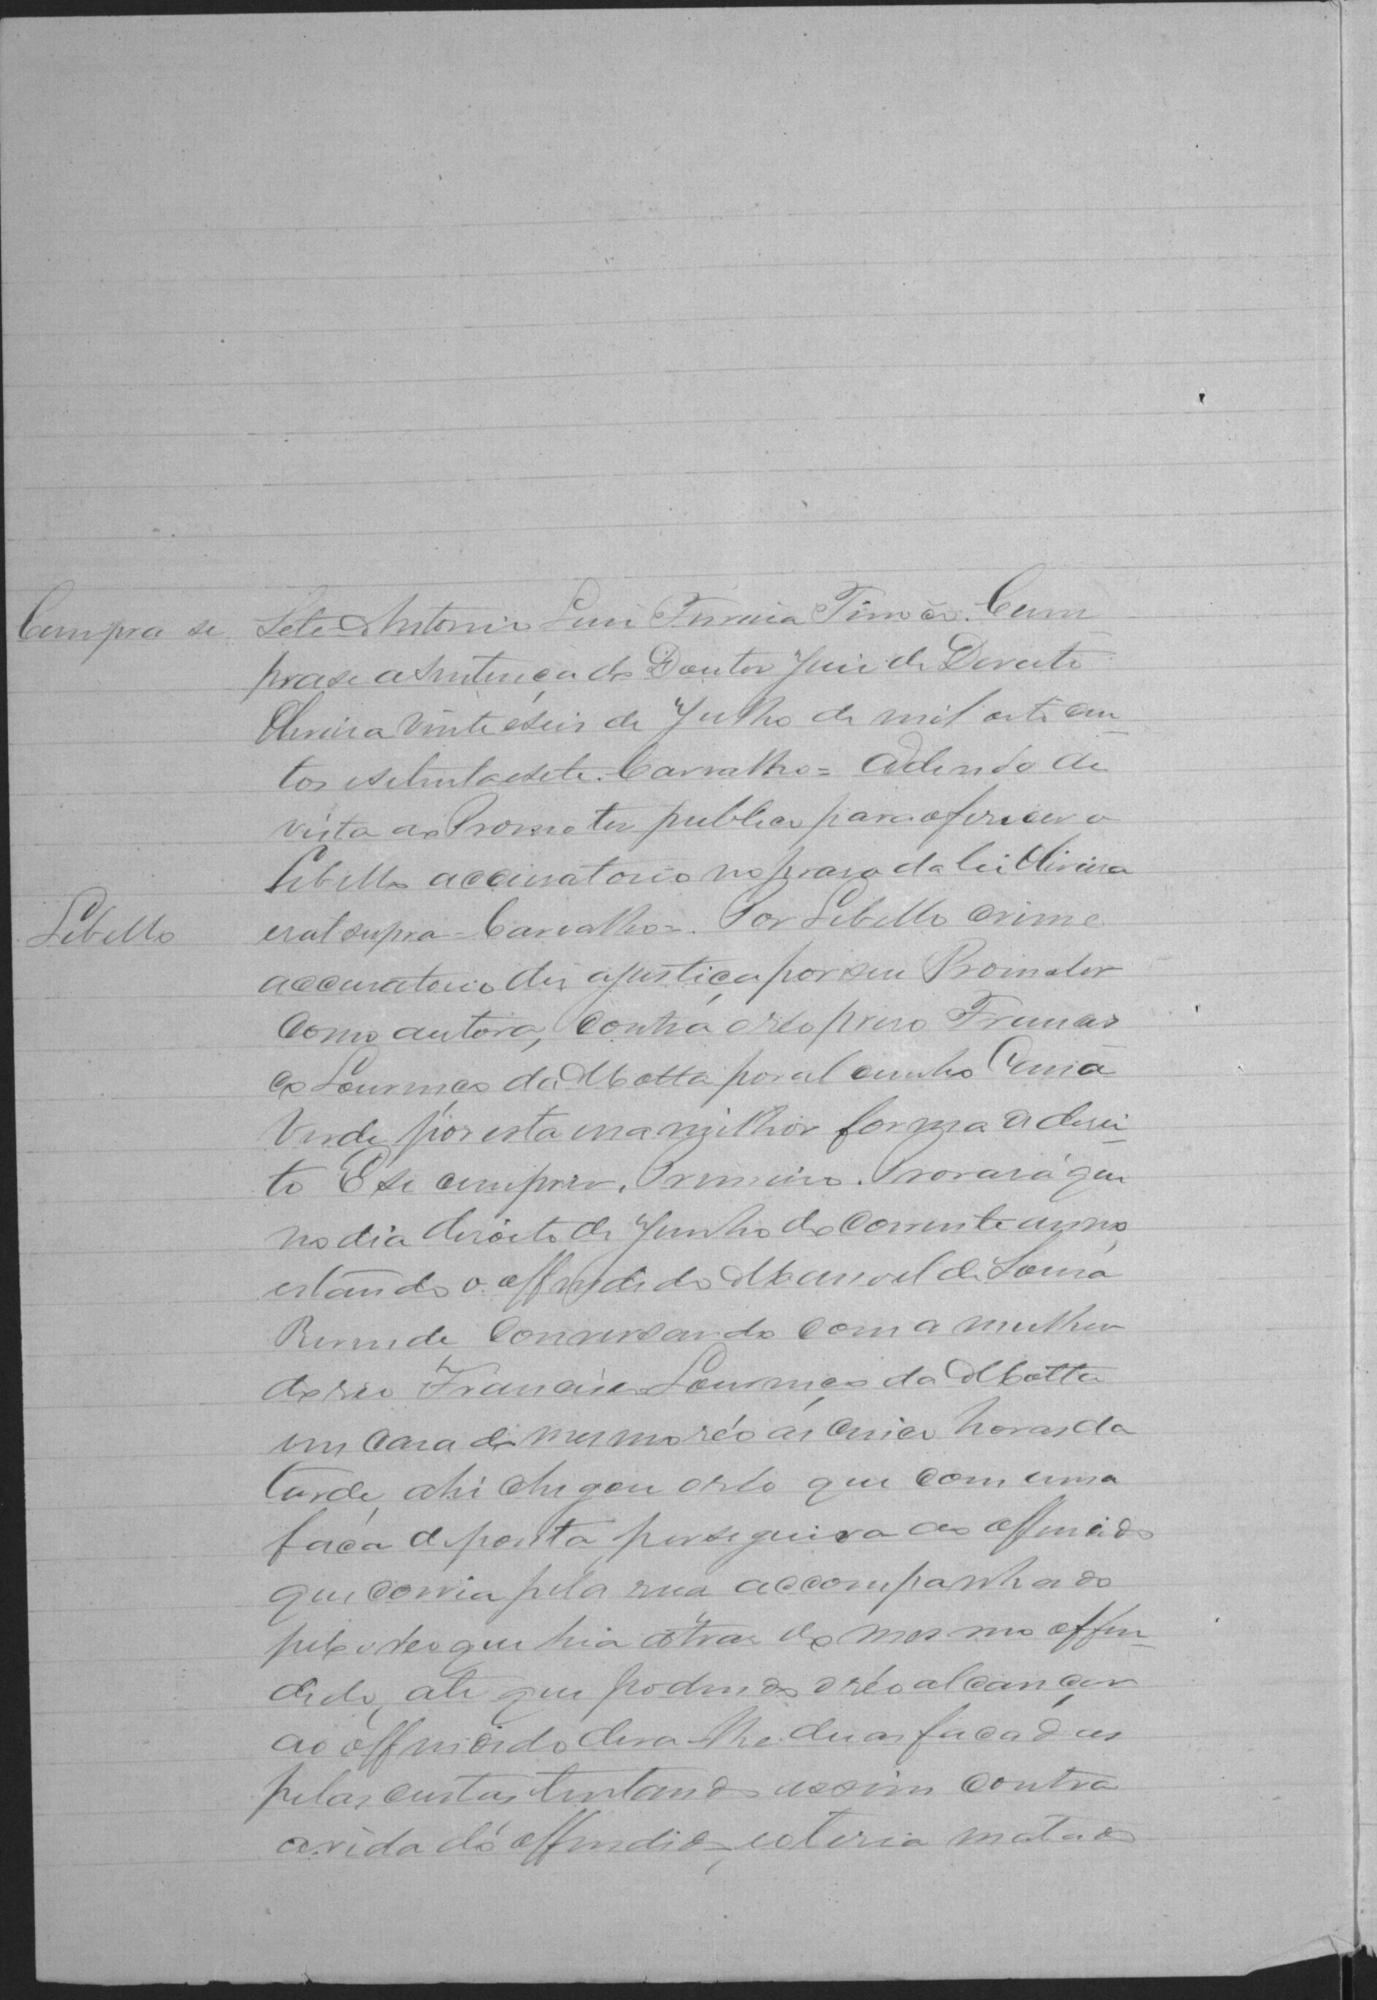 Cumpra se
Sete Antonio Luis Ferreira Tinoco. Cum
prase a sentença do Doutor Juiz de Dereito
Oliveira vinte eseis de Julho de mil oito cen
tos esetenta esete. Carvalho = Adendo de
vista ao Promotor publico para oferecer o
Libello accusatorio no praso da lei Oliveira
erat supra = Carvalho =. Por Libello crime
Libello
accusatorio diz ajustiça por seu Promotor
como autora, contra oréo preso Francis
co Lourenço da Motta por alcunho
Verde, por esta ena milhor forma de derei
to E se cumprir. Premeiro. Provará que
no dia desoito de Junho do corrente anno,
estando o offendido Manoel de Sousa
Resende conversando com a mulher
do réo Francisco Lourenço da Motta
em casa do mesmo réo as cinco horas da
tarde, ahi chegou oréo que com uma
faca de ponta perseguira ao offendido
que corria pela rua accompanhado
pelo réo que hia atras do mesmo offen
dido, ate que podendo oréo alcançar
ao offendido dera lhe duas facadas
pelas custas tentando assim contra
avida do offendido, eoteria matado